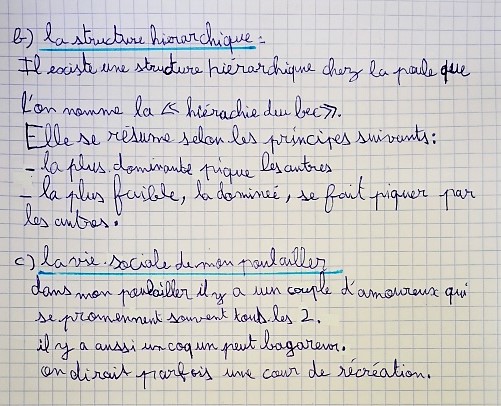 b) la structure hiérarchique :
Il existe une structure hiérarchique chez la poule que
l'on nomme la << hiérachie du bec >>.
Elle se résume selon les principes suivants :
- la plus dominante pique les autres
- la plus faible, la dominée, se fait piquer par
les autres.
c) la vie sociale de mon poulailler
dans mon poulailler il y a un couple d'amoureux qui
se promennent souvent tous les 2.
il y a aussi un coq un peut bagareur.
on dirait parfois une cour de récréation.